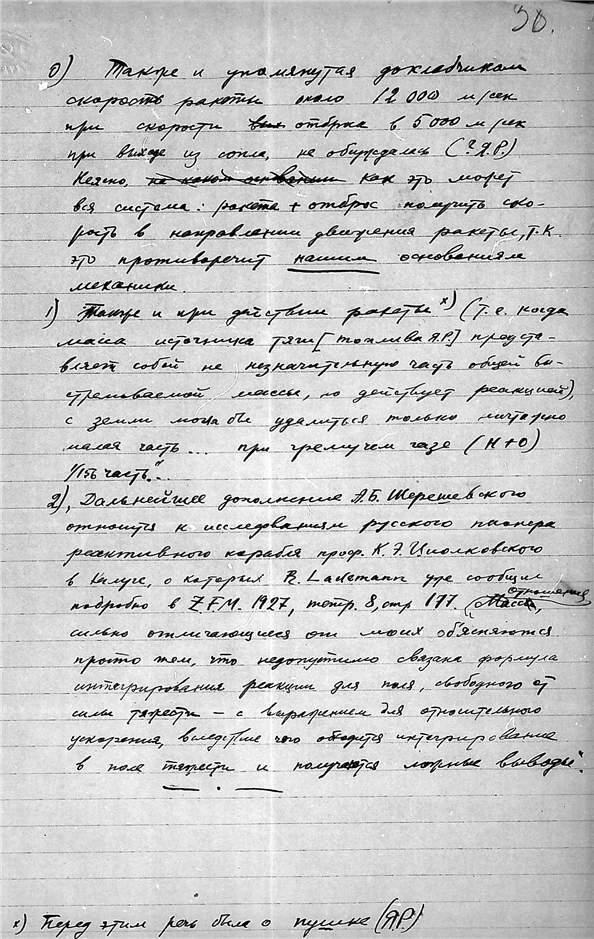 38.
0) Также и упомянутая докладчиком
скорость ракеты около 12 000 м/сек
при скорости отброса в 5000 м/сек
при выходе из сопла, не обсуждалась (? Я.Р.)
Неясно, на каком основании как это может
вся система: ракета + отброс получить ско-
рость в направлении движения ракеты, т.к.
это противоречит нашим основаниям
механики.
1) Также и при действии ракеты х) (т.е. когда
масса источника тяги [топлива Я.Р.] предста-
вляет собой не незначительную часть общей вы-
стреливаемой массы, но действует реакцией),
с земли могла бы удалиться только ничтожно
малая часть... при гремучем газе (H+O)
1/156 часть".
2) "Дальнейшее дополнение А.Б. Шершевского
относится к исследованиям русского пионера
реактивного корабля проф. К.Э. Циолковского
в Калуге, о которых R. Lademann уже сообщил
подробно в Z.F.M. 1927, тетр. 8, стр 177. (Масс
отношения
сильно отличающиеся от моих объясняются
просто тем, что недопустимо связана формула
интегрирования реакции для поля, свободного от
силы тяжести – с выражением для относительного
ускорения, вследствие чего интегрирование
в поле тяжести и получаются ложные выводы".
х) Перед этим речь была о пушке (Я.Р.)